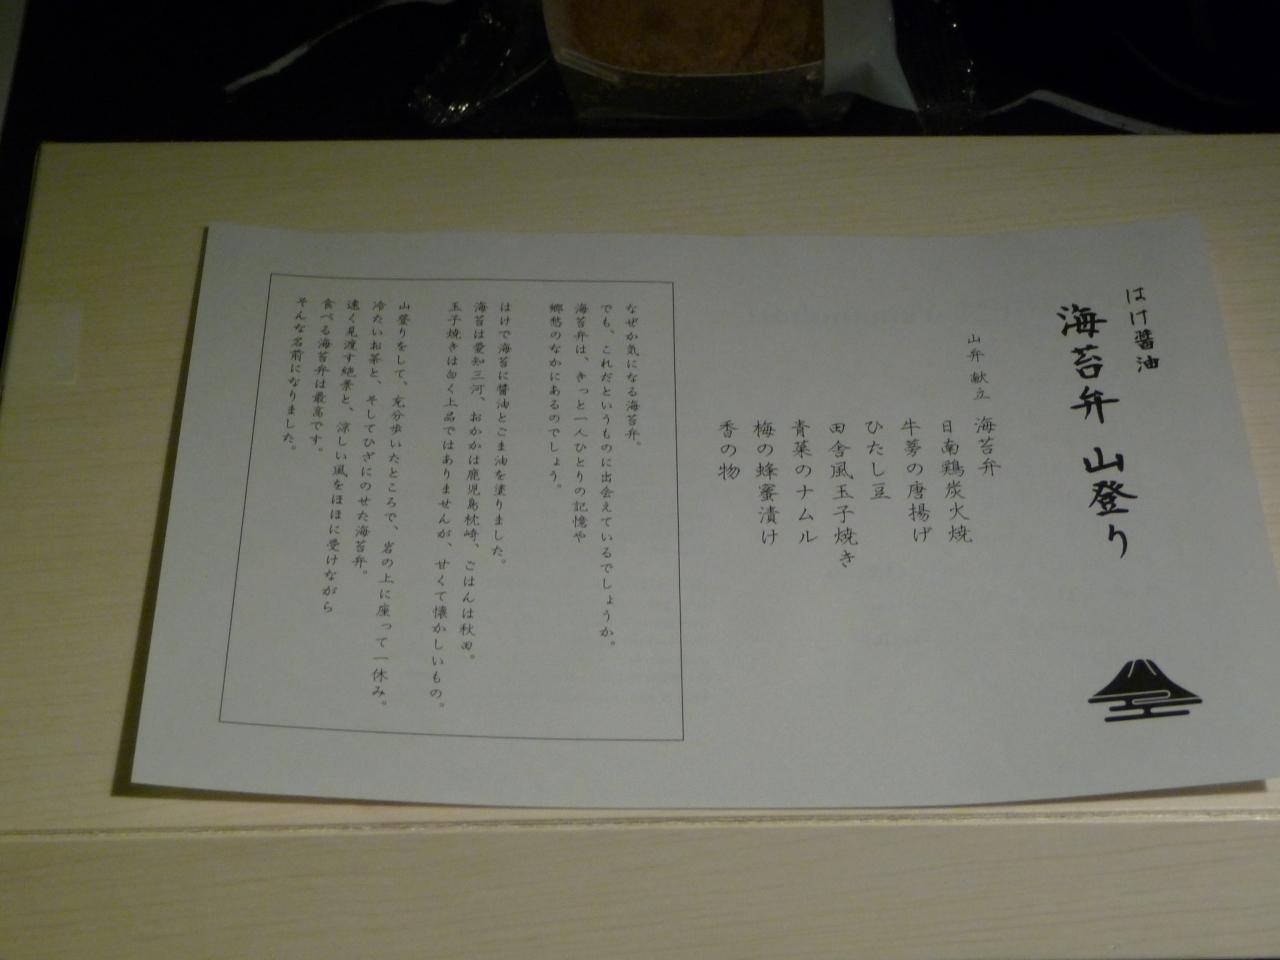 はけ醤油
海苔弁 山登り
山弁 献立
海苔弁
日南鶏炭火焼
牛蒡の唐揚げ
ひたし豆
田舎風玉子焼き
青菜のナムル
梅の蜂蜜漬け
香の物
なぜか気になる海苔弁。
でも、これだというものに出会えているでしょうか。
海苔弁は、きっと一人ひとりの記憶や
郷愁のなかにあるのでしょう。
はけで海苔に醤油とごま油を塗りました。
海苔は愛知三河、おかかは鹿児島枕崎、ごはんは秋田。
玉子焼きは白く上品ではありませんが、甘くて懐かしいもの。
山登りをして、充分歩いたところで、岩の上に座って一休み。
冷たいお茶と、そしてひざにのせた海苔弁。
遠く見渡す絶景と、涼しい風をほほに受けながら
食べる海苔弁は最高です。
そんな名前になりました。